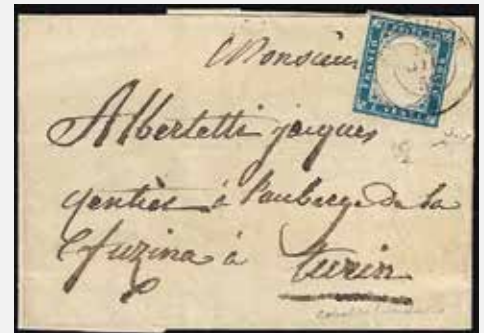 Monsieur
Albertetti jacques
à l'auberge de la
fuzina à
turin